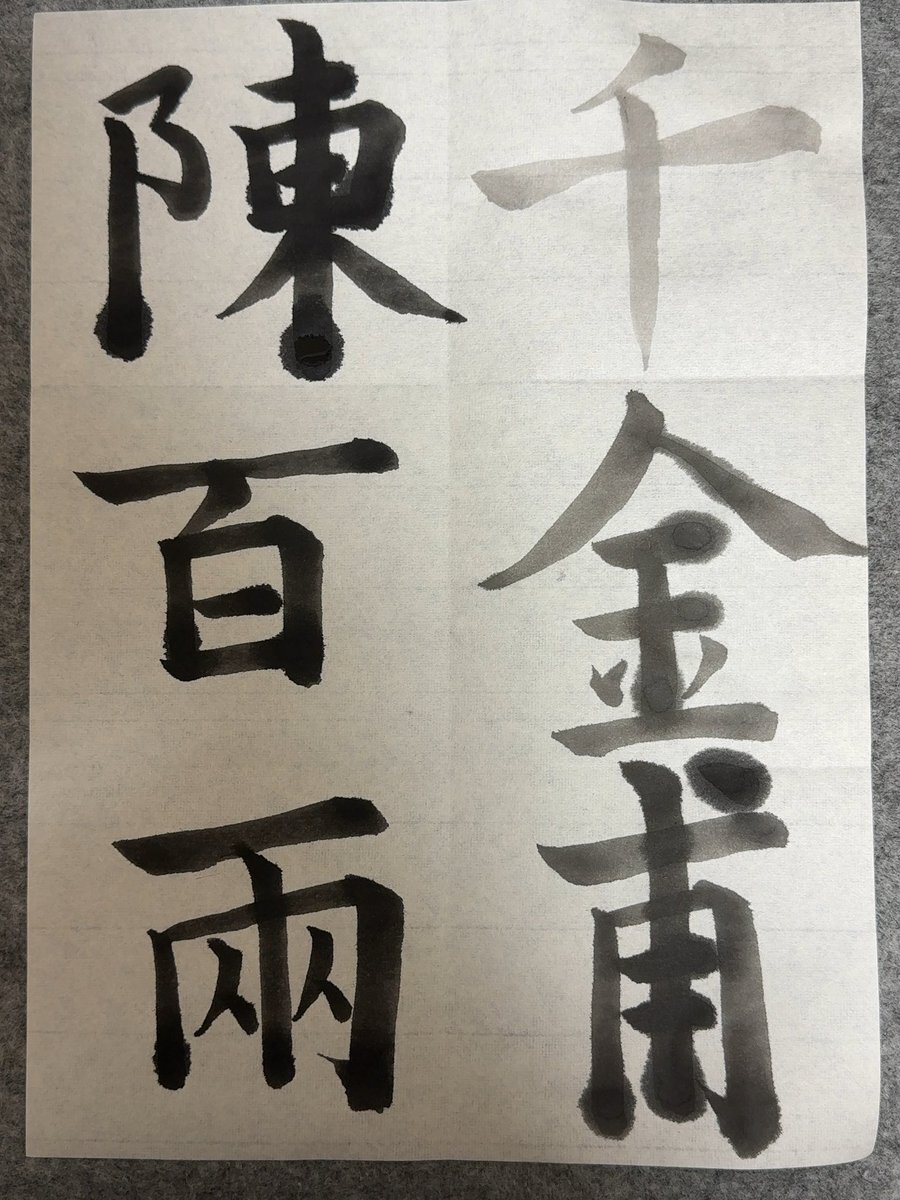 千金甫
陳百兩